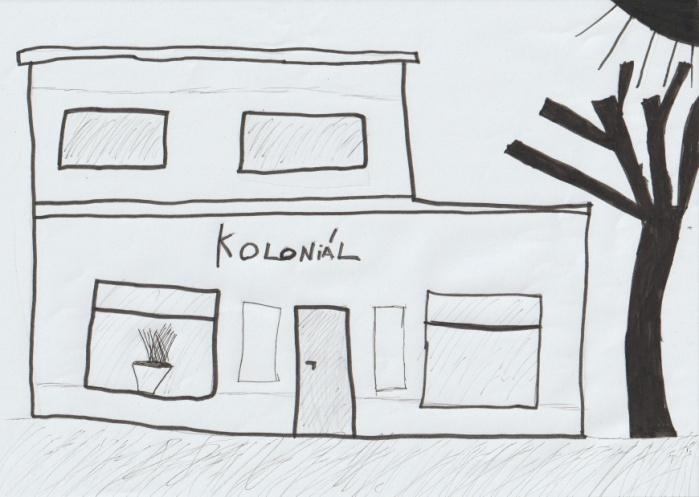 KOLONIÁL